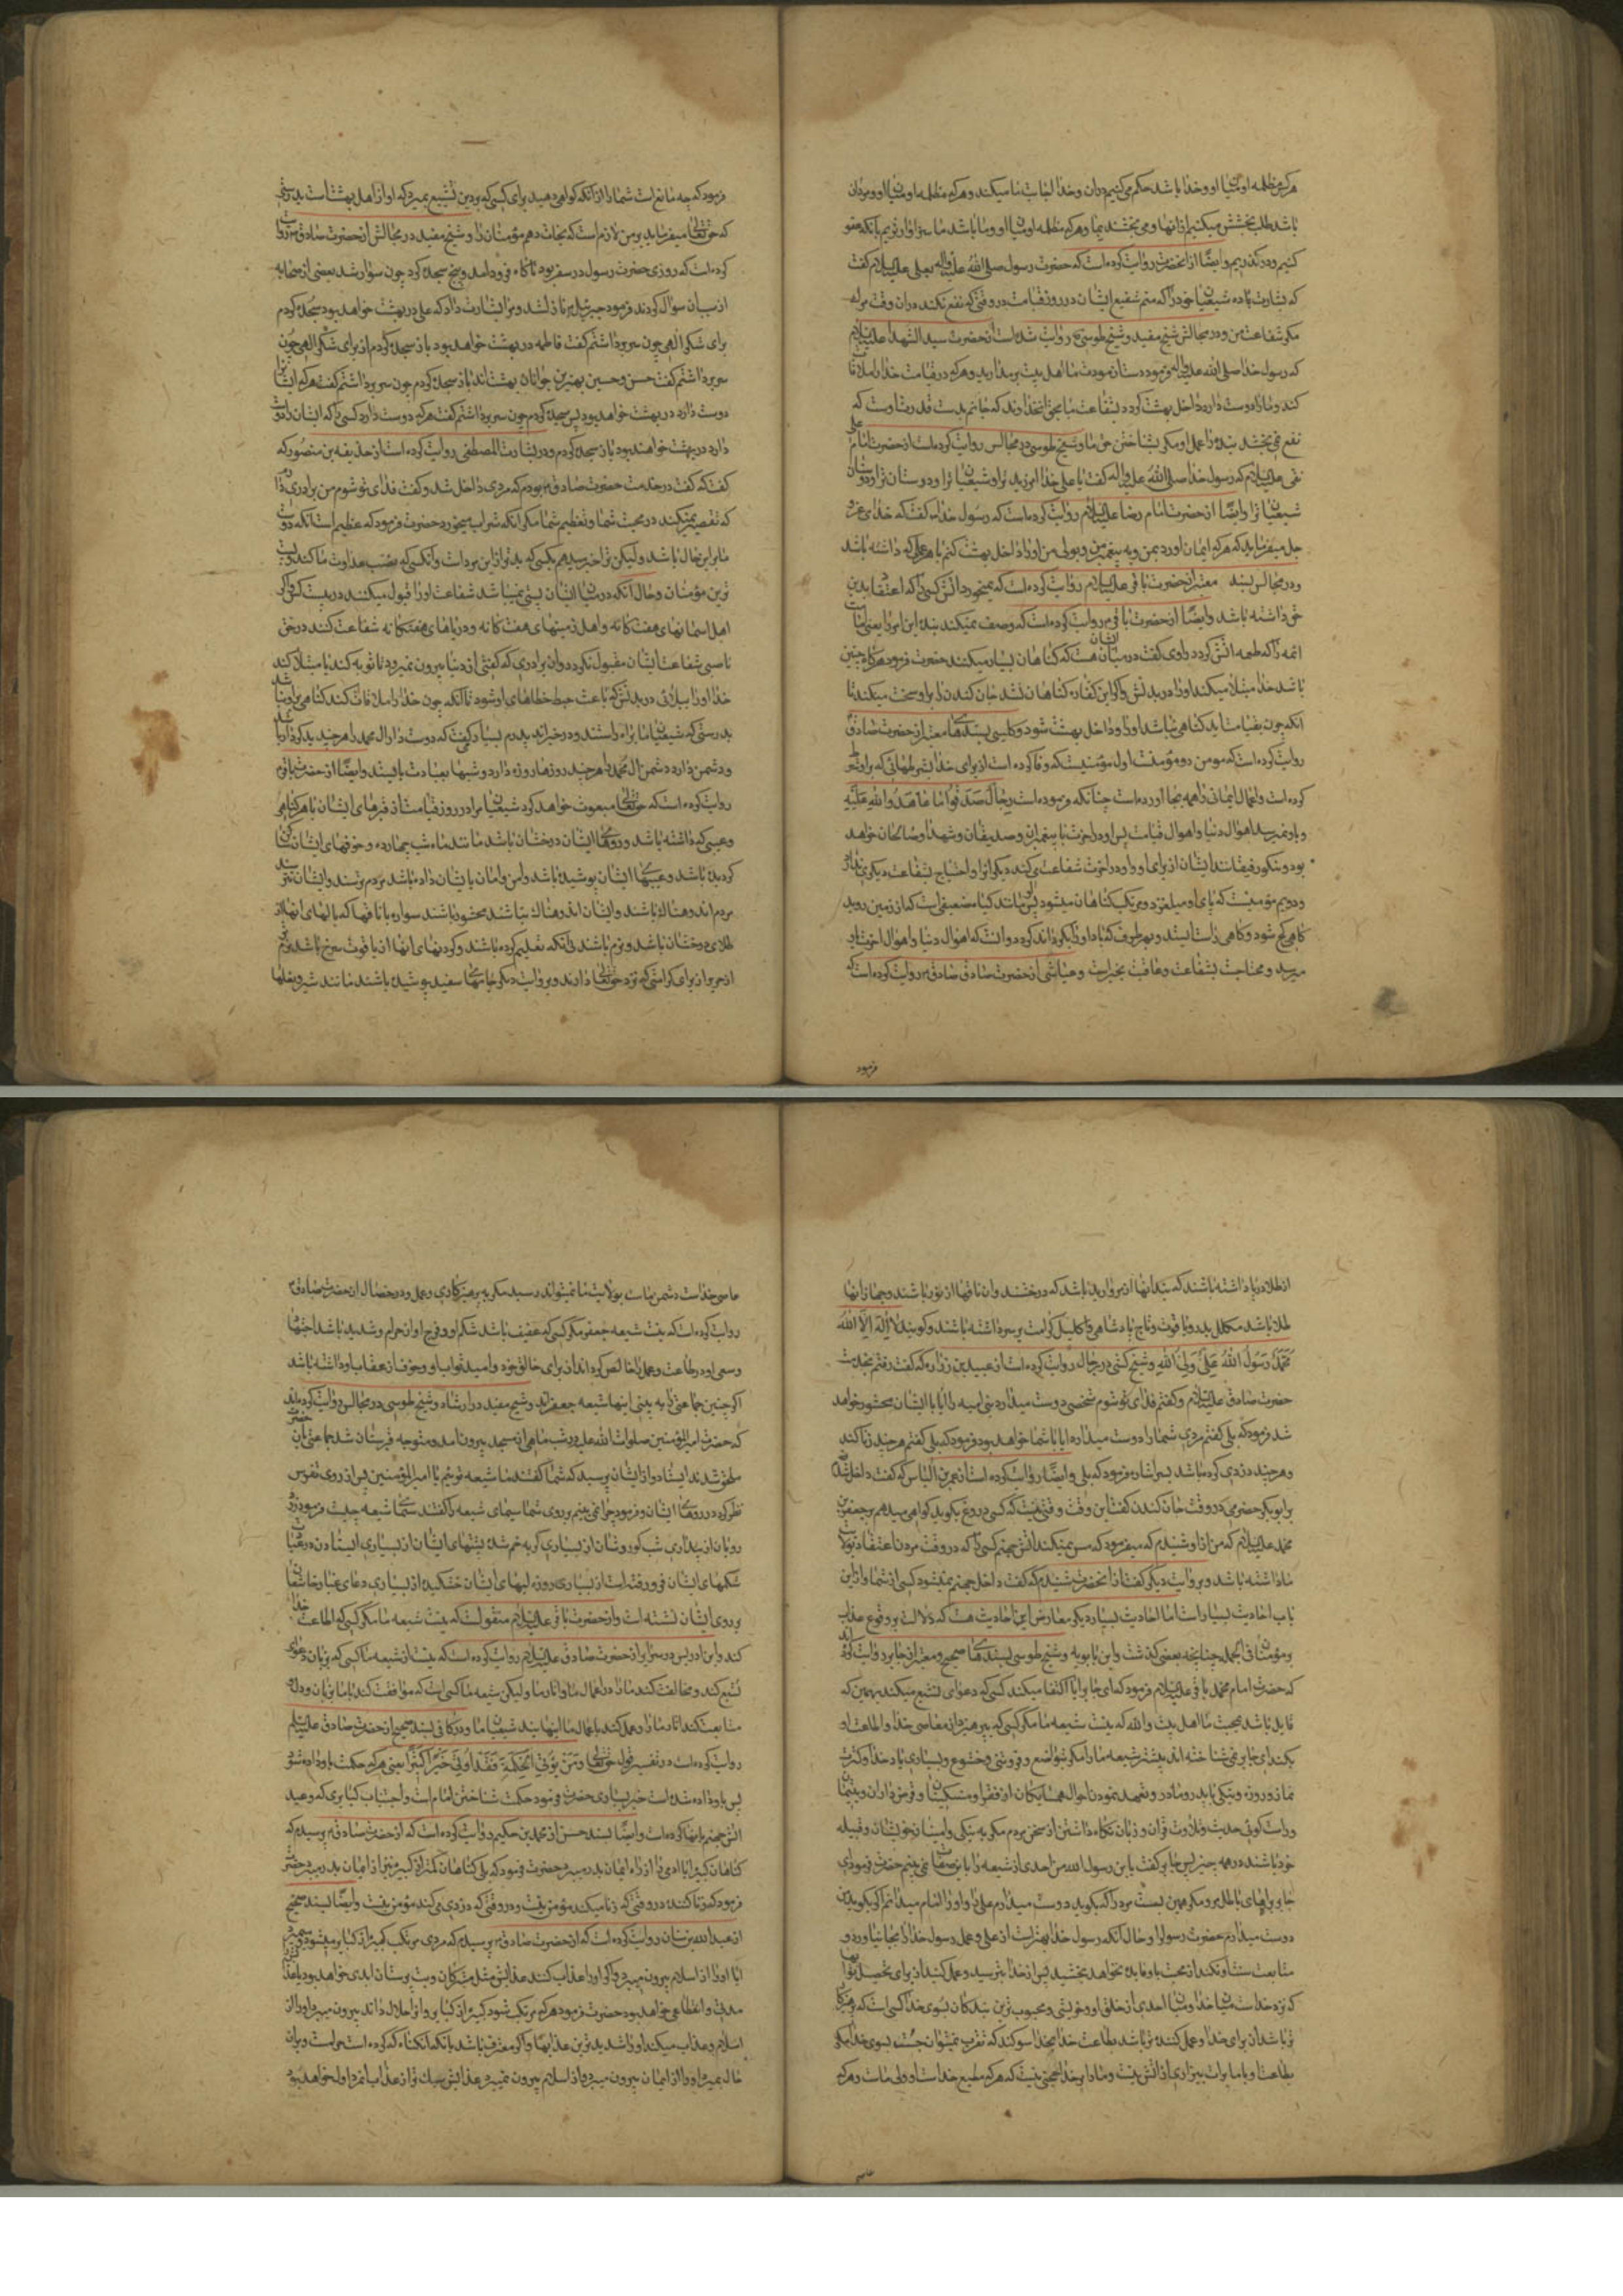 هرکه مظلمه او میان او و خدا باشد حکم می‌کنیم در آن و خدا اجابت ما میکند و هرکه مظلمه او میان او و مردان
باشد طلب بخشش میکنیم از آنها و می بخشند بما و هرکه مظلمه او میان او و ما باشد ما سزاوارتریم بآنکه عفو
کنیم و درگذریم و ایضا از انحضرت روایت کرده است که حضرت رسول صلی الله علیه و اله بعلی علیه السلام گفت
که بشارت بده شیعیان خود را که منم شفیع ایشان در روز قیامت در وقتی که نفع نکند در آن وقت
مگر شفاعت من و در مجالس شیخ مفید و شیخ طوسی روایت شده است از حضرت سید الشهدا علیه السلام
که رسول خدا صلی الله علیه و اله فرمود دست از مودت ما اهل بیت برمدارید و هرکه در قیامت خدا را ملاقات
کند و ما را دوست دارد داخل بهشت گردد بشفاعت ما بحق آنخداوند که جانم بدست قدرت اوست که
نفع نمی بخشد بنده را عمل او مگر بشناختن حق ما و شیخ طوسی در مجالس روایت کرده است از حضرت امام علی
نقی علیه السلام که رسول خدا صلی الله علیه و اله گفت یا علی خدا آمرزید ترا و شیعیان ترا و دوستان ترا و دوستان
شیعیان ترا و ایضا از حضرت امام رضا علیه السلام روایت کرده است که رسول خدا گفت که خدای عز و
جل میفرماید که هرکه ایمان آورد بمن و به پیغمبر من و بولی من او را داخل بهشت کنم با هر عملی که داشته باشد
و در مجالس بسند معتبر از حضرت باقر علیه السلام روایت کرده است که نمیخورد اتش کسی را که اعتقاد بدین
حق داشته باشد و ایضا از حضرت باقر روایت کرده است که وصف نمیکند بنده این امر را یعنی امامت
ائمه را که طعمه اتش گردد راوی گفت در میان ایشان هست که گناهان بسیار میکنند حضرت فرمود هرگاه چنین
باشد خدا مبتلا میکند او را در بدنش و اگر این کفاره گناهان نشد جان کندن را بر او سخت میکند تا
آنکه چون بقیامت آید گناهی نباشد او را و داخل بهشت شود و کلینی بسندهای معتبر از حضرت صادق
روایت کرده است که مومن دو مؤمنست اول مؤمنیست که وفا کرده است از برای خدا بشرطهائی که بر او
کرده است و اعمال ایمانی را همه بجا اورده است چنانکه فرموده است رجال صدقوا ما عاهدوا الله علیه
و باو نمیرسد اهوال دنیا و اهوال قیامت پس او در اخرت با پیغمبران و صدیقان و شهدا و صالحان خواهد
بود و نیکو رفیقانند ایشان از برای او و او در اخرت شفاعت می کند دیگران را و احتیاج بشفاعت دیگری ندارد
و دویم مؤمنیست که پای او میلغزد و مرتکب گناهان میشود پس او مانند گیاه ضعیفی است که از زمین روید
گاهی کج شود و گاهی راست ایستد و بهر طرف که باد او را بگرداند گردد و آنست که اهوال دنیا و اهوال اخرت باو
میرسد و محتاجست بشفاعت و عاقبت بخیر است و عیاشی از حضرت صادق روایت کرده است که
فرمود
فرمود که چه مانع است شما را از آنکه گواهی دهید برای کسی که بر دین تشیع بمیرد که او از اهل بهشت است بدرستی
که حق تعالی میفرماید بر من لازم است که نجات دهم مؤمنان را و شیخ مفید در مجالس از حضرت صادق روایت
کرده است که روزی حضرت رسول در سفر بود ناگاه فرود آمد و پنج سجده کرد چون سوار شد بعضی از صحابه
از سبب آن سؤال کردند فرمود جبرئیل بر من نازل شد و مرا بشارت داد که علی در بهشت خواهد بود سجده کردم
برای شکر الهی چون سر برداشتم گفت فاطمه در بهشت خواهد بود باز سجده کردم از برای شکر الهی چون
سر برداشتم گفت حسن و حسین بهترین جوانان بهشت اند باز سجده کردم چون سر برداشتم گفت هرکه ایشان را
دوست دارد در بهشت خواهد بود پس سجده کردم چون سر برداشتم گفت هرکه دوست دارد کسی را که ایشان را دوست
دارد در بهشت خواهند بود باز سجده کردم و در بشارت المصطفی روایت کرده است از حذیفه بن منصور که
گفت که گفت در خدمت حضرت صادق بودم که مردی داخل شد و گفت فدای تو شوم من برادری دارم
که تقصیر نمیکند در محبت شما و تعظیم شما مگر آنکه شراب میخورد حضرت فرمود که عظیم است آنکه دوست
ما بر این حال باشد و لیکن ترا خبر میدهم بکسی که بدتر از این مرد است و آنکسی که نصب عداوت ما کند و پست
ترین مؤمنان و حال آنکه در میان ایشان پستی نمیباشد شفاعت او را قبول میکنند در دویست کس و اگر
اهل آسمانهای هفت گانه و اهل زمینهای هفت گانه و دریاهای هفتگانه شفاعت کنند در حق
ناصبی شفاعت ایشان مقبول نگردد و ان برادری که گفتی از دنیا بیرون نمیرود تا توبه کند یا مبتلا کند
خدا او را ببلائی در بدنش که باعث حبط خطاهای او شود تا آنکه چون خدا را ملاقات کند گناهی بر او نباشد
بدرستی که شیعیان ما براه راستند و در خیراند پدرم بسیار میگفت که دوست دار ال محمد را هر چند بد کردار باشد
و دشمن دار دشمن ال محمد را هر چند روزها روزه دارد و شبها بعبادت بایستد و ایضا از حضرت باقر
روایت کرده است که حق تعالی مبعوث خواهد کرد شیعیان ما را در روز قیامت از قبرهای ایشان با هر گناهی
و عیبی که داشته باشد و روهای ایشان درخشان باشد مانند ماه شب چهارده و خوفهای ایشان ساکن
گردیده باشد و عیبهای ایشان پوشیده باشد و امن و امان بایشان داده باشد مردم ترسند و ایشان نترسند
مردم اندوهناک باشند و ایشان اندوهناک نباشند محشور باشند سواره با ناقها که بالهای انها از
طلای درخشان باشد و نرم باشند بی آنکه تعلیم کرده باشند و گردنهای آنها از یاقوت سرخ باشد نرم تر
از حریر از برای کرامتی که نزد حق تعالی دارند و بروایت دیگر جامهای سفید پوشیده باشند مانند شیر و نعلها
از طلا در پا داشته باشند که بندهای آنها از مروارید باشد که درخشند و ان ناقها از نور باشند و جهاز آنها
طلا باشد مکلل بدر و یاقوت و تاج پادشاهی و اکلیل کرامت بر سر داشته باشند و گویند لا اله الا الله
محمد رسول الله علی ولی الله و شیخ کشی در رجال روایت کرده است از عبید بن زراره که گفت رفتم بخدمت
حضرت صادق علیه السلام و گفتم فدای تو شوم شخصی دوست میدارد بنی امیه را ایا با ایشان محشور خواهد
شد فرمود که بلی گفتم مردی شما را دوست میدارد ایا با شما خواهد بود فرمود که بلی گفتم هر چند زنا کند
و هر چند دزدی کرده باشد بسر اشاره فرمود که بلی و ایضا روایت کرده است از عمر بن الیاس که گفت داخل شدم
بر ابو بکر حضرمی در وقت جان کندن گفت این وقت وقتی نیست که کسی دروغ بگوید گواهی میدهم بر جعفر بن
محمد علیه السلام که من از او شنیدم که میفرمود که مس نمیکند اتش جهنم کسی را که در وقت مردن اعتقاد بولایت
ما داشته باشد و بروایت دیگر گفت از انحضرت شنیدم که گفت داخل جهنم نمیشود کسی از شما و از این
باب احادیث بسیار است اما احادیث بسیار دیگر معارض این احادیث هست که دلالت بر وقوع عذاب
بر مؤمنان فی الجمله چنانچه بعضی گذشت و ابن بابویه و شیخ طوسی بسندهای صحیح و معتبر از جابر روایت کرده اند
که حضرت امام محمد باقر علیه السلام فرمود که ای جابر ایا اکتفا میکند کسی که دعوای تشیع میکند بهمین که
قایل باشد بمحبت ما اهل بیت و الله که نیست شیعه ما مگر کسی که بپرهیزد از معاصی خدا و اطاعت او
بکند ای جابر نمی شناخته اند پیشتر شیعه ما را مگر بتواضع و فروتنی و خشوع و بسیاری یاد خدا و کثرت
نماز و روزه و نیکی با پدر و مادر و تعهد نمودن احوال همسایگان از فقرا و مسکینان و قرض داران و یتیمان
و راست گوئی حدیث و تلاوت قران و زبان نگاه داشتن از سخن مردم مگر به نیکی و امینان خویشان و قبیله
خود باشند در همه چیز پس جابر گفت یا بن رسول الله من احدی از شیعه را باین صفات نمی بینم حضرت فرمود ای
جابر براههای باطل مرو مگر همین بست مرد را که بگوید دوست میدارم علی را و او را امام میدانم اگر بگوید من
دوست میدارم حضرت رسول را و حال آنکه رسول خدا بهتر است از علی و عمل رسول خدا را بجا نیاورد و
متابعت سنت او نکند این محبت باو فایده نخواهد بخشید پس از خدا بترسید و عمل کنید از برای تحصیل ثوابها
که نزد خداست میان خدا و میان احدی از خلق او خویشی و محبوب ترین بندگان بسوی خدا کسی است که پرهیزکار
تر باشد از برای خدا و عمل کننده تر باشد بطاعت خدا بخدا سوگند که تقرب نمیتوان جست بسوی خدا مگر
بطاعت او با ما برات بیزاری از اتش نیست و ما را بر خدا حجتی نیست که هرکه مطیع خداست او ولی ماست و هرکه
عاصی
عاصی خداست دشمن ماست بولایت ما نمیتواند رسید مگر به پرهیزکاری و عمل و در خصال از حضرت صادق
روایت کرده است که نیست شیعه جعفر مگر کسی که عفیف باشد شکم او و فرج او از حرام و شدید باشد اجتهاد
و سعی او در طاعت و عمل را خالص کرده اند از برای خالق خود و امید ثواب او و خوف از عقاب او داشته باشد
اگر چنین جماعتی را به بینی اینها شیعه جعفراند و شیخ مفید در ارشاد و شیخ طوسی در مجالس روایت کرده اند
که حضرت امیر المؤمنین صلوات الله علیه در شب ماهی از مسجد بیرون آمد و متوجه قبرستان شد جماعتی بان حضرت
ملحق شدند ایستاد و از ایشان پرسید که شما گفتند ما شیعه توئیم یا امیر المؤمنین پس از روی تفرس
نظر کرد در روهای ایشان و فرمود چرا نمی بینم بر روی شما سیمای شیعه را گفتند سیمای شیعه چیست فرمود زرد
رویان از بیداری شب کور وشان از بسیاری گریه خم شده پشتهای ایشان از بسیاری ایستادن در عبادت
شکمهای ایشان فرو رفته است از بسیاری روزه لبهای ایشان خشکیده از بسیاری دعای غبار خاشعان
بر روی ایشان نشسته است و از حضرت باقر علیه السلام منقولست که نیست شیعه ما مگر کسی که اطاعت خدا
کند و ابن ادریس در سرایر از حضرت صادق علیه السلام روایت کرده است که نیست از شیعه ما کسی که بزبان دعوای
تشیع کند و مخالفت کند ما را در اعمال ما و اثار ما و لیکن شیعه ما کسی است که موافقت کند با ما بزبان و دل و
متابعت کند اثار ما را و عمل کند باعمال ما اینهایند شیعیان ما و در کافی بسند صحیح از حضرت صادق علیه السلام
روایت کرده است در تفسیر قول حق تعالی و من یؤتی الحکمة فقد اوتی خیرا کثیرا یعنی هرکه حکمت باو داده شود
پس باو داده شده است خیر بسیاری حضرت فرمود حکمت شناختن امام است و اجتناب کبایری که وعید
اتش جهنم بانها کرده است و ایضا بسند حسن از محمد بن حکیم روایت کرده است که از حضرت صادق پرسیدم که
گناهان کبیره ایا آدمی را از راه ایمان بدر میبرد حضرت فرمود که بلی گناهان کمتر از کبیره نیز از ایمان بدر میبرد حضرت
فرمود که زنا کننده در وقتی که زنا میکند مؤمن نیست و دزد وقتی که دزدی می کند مؤمن نیست و ایضا بسند صحیح
از عبد الله بن سنان روایت کرده است که از حضرت صادق پرسیدم که مردی مرتکب کبیره از کبایر میشود و میمیرد
ایا او را از اسلام بیرون میبرد و اگر او را عذاب کنند عذابش مثل مشرکان و بت پرستان ابدی خواهد بود یا عذاب
مدت و انقطاعی خواهد بود حضرت فرمود هرکه مرتکب شود کبیره از کبایر و او را حلال داند بیرون میبرد او را از
اسلام و عذاب میکند او را شدیدترین عذابها و اگر معترف باشد بانکه آن گناه که کرده است حرامست و بران
حال بمیرد او را از ایمان بیرون میبرد و از اسلام بیرون نمیبرد و عذابش سبک تر از عذاب مرد اول خواهد بود